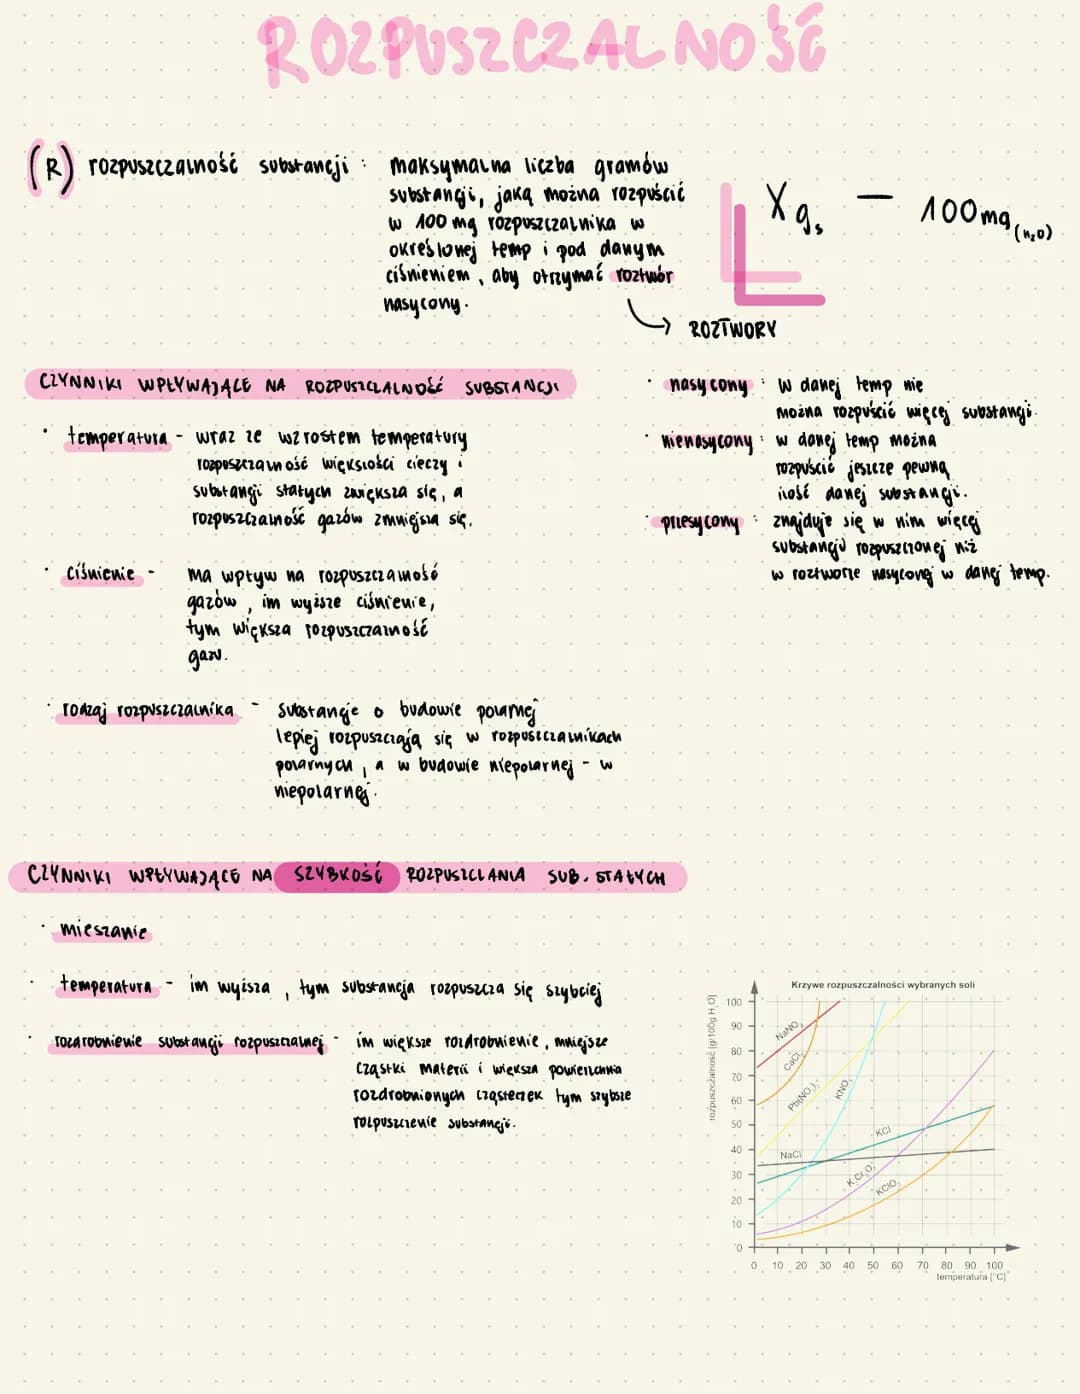 ROZPUSZCZALNOŚĆ
(R) rozpuszczalność substancji : maksymalna liczba gramów
substancji, jaką można rozpuścić
w 100 mg rozpuszczalnika w
określonej temp i pod danym
ciśnieniem, aby otrzymać roztwór
nasycony.
X g s — 100mg (H2O)
→ ROZTWORY
• nasycony : w danej temp nie
można rozpuścić więcej substancji.
• nienasycony : w danej temp można
rozpuścić jeszcze pewną
ilość danej substancji.
• przesycony : znajduje się w nim więcej
substancji rozpuszczonej niż
w roztworze nasyconej w danej temp.
CZYNNIKI WPŁYWAJĄCE NA ROZPUSZCZALNOŚĆ SUBSTANCJI
• temperatura - wraz ze wzrostem temperatury
rozpuszczalność większości cieczy i
substancji stałych zwiększa się, a
rozpuszczalność gazów zmniejsza się.
• ciśnienie - Ma wpływ na rozpuszczalność
gazów, im wyższe ciśnienie,
tym większa rozpuszczalność
gazu.
• rodzaj rozpuszczalnika - substancje o budowie polarnej
lepiej rozpuszczają się w rozpuszczalnikach
polarnych, a w budowie niepolarnej - w
niepolarnej.
CZYNNIKI WPŁYWAJĄCE NA SZYBKOŚĆ ROZPUSZCZANIA SUB. STAŁYCH
• mieszanie
• temperatura - im wyższa, tym substancja rozpuszcza się szybciej
• rozdrobnienie substancji rozpuszczalnej - im większe rozdrobnienie, mniejsze
cząstki materii i większa powierzchnia
rozdrobnionych cząsteczek tym szybsze
rozpuszczenie substancji.
Krzywe rozpuszczalności wybranych soli
rozpuszczalność [g/100g H2O]
100
90
80
70
60
50
40
30
20
10
0
NaNO3
CaCl2
Pb(NO3)2
KNO3
KCl
NaCl
K2Cr2O7
KClO3
0 10 20 30 40 50 60 70 80 90 100
temperatura [°C]